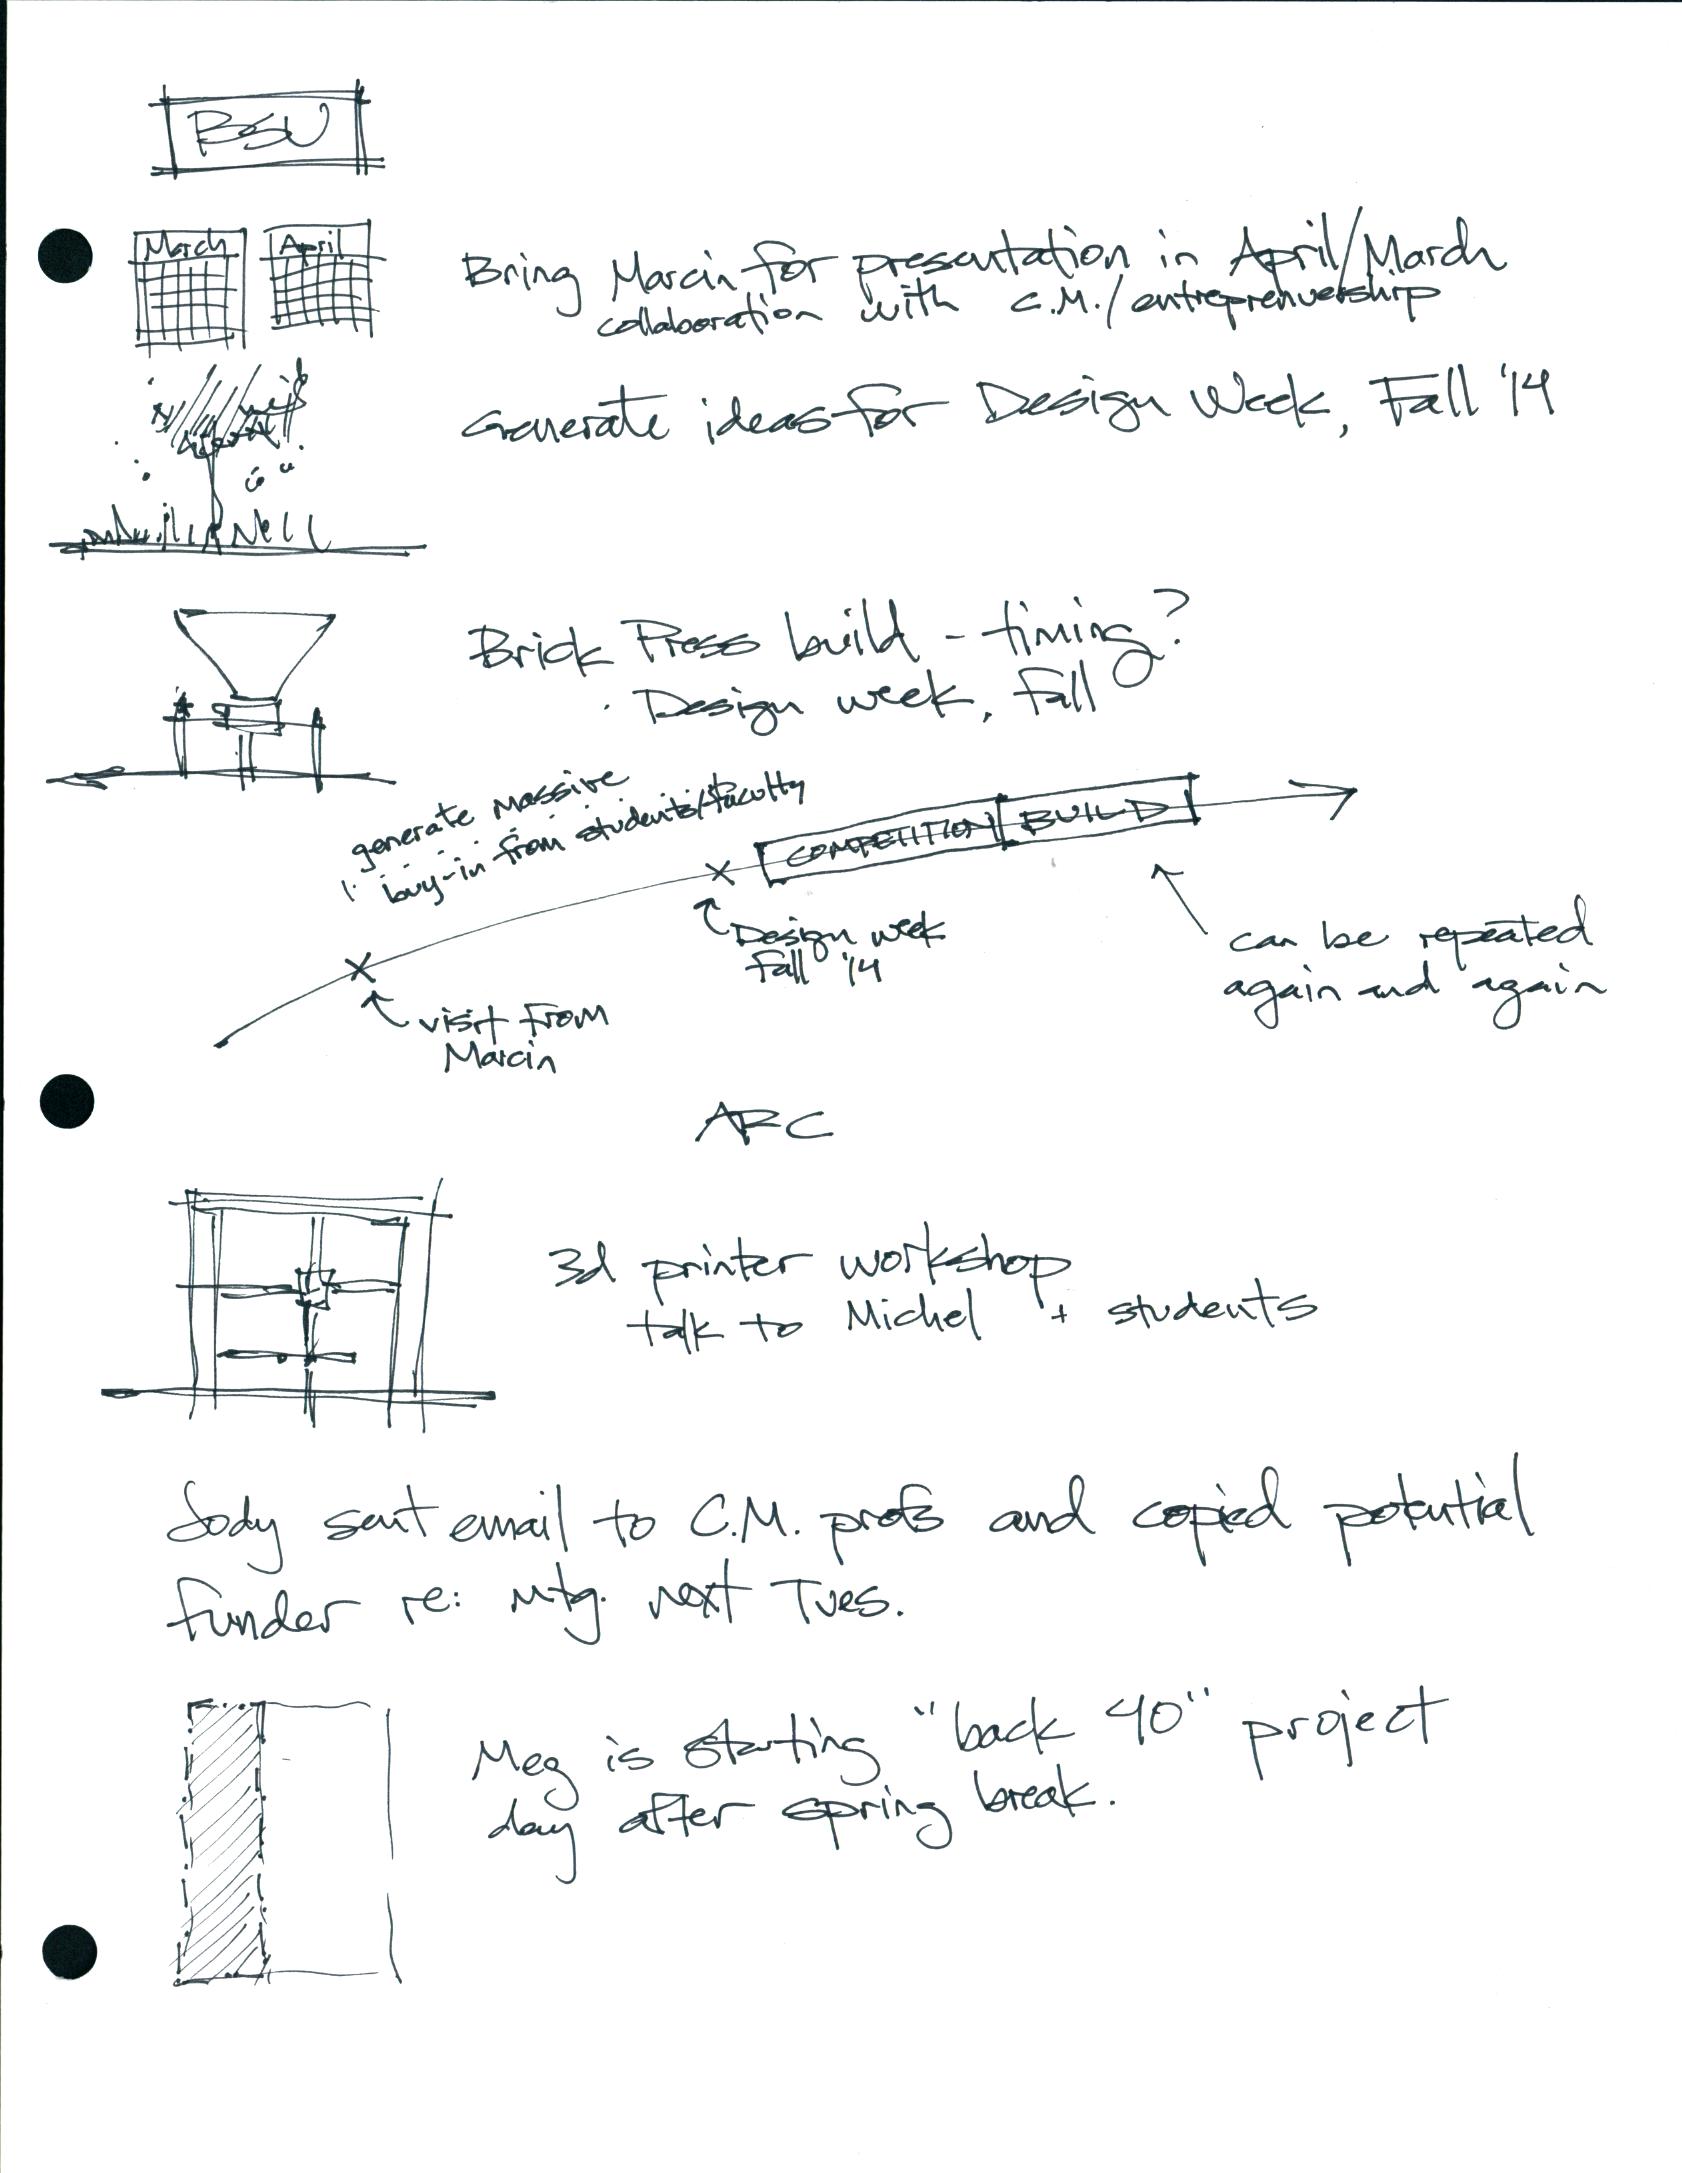 BSU
March April
Bring Marcin for presentation in April/March
collaboration with C.M./entreprenuership
Generate ideas for Design Week, Fall '14
Brick Press build - timing?
· Design week, Fall
generate massive
buy-in from students/faculty
COMPETITION BUILD
Design week
Fall '14
can be repeated
again and again
visit from
Marcin
ARC
3d printer workshop
talk to Michel + students
Jody sent email to C.M. profs and copied potential
funder re: mtg. next Tues.
Meg is starting "back 40" project
day after spring break.